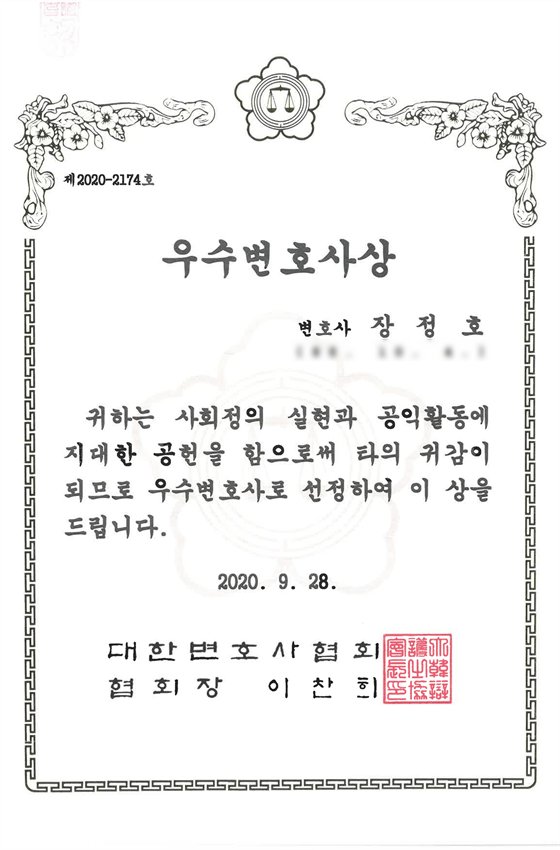 제2020-2174호
우수변호사상
변호사 장 정 호
귀하는 사회정의 실현과 공익활동에
지대한 공헌을 함으로써 타의 귀감이
되므로 우수변호사로 선정하여 이 상을
드립니다.
2020. 9. 28.
대한변호사협회
협회장 이찬희